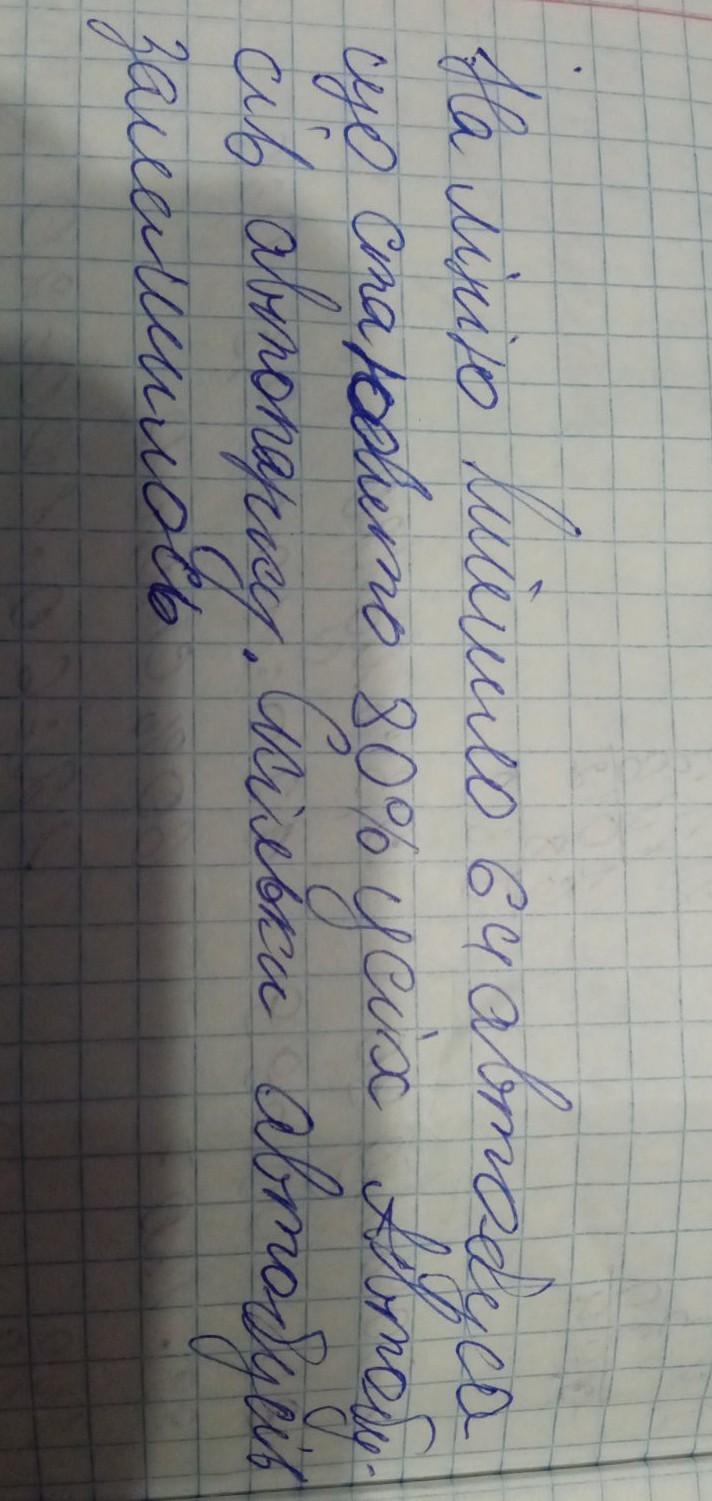 На лінію вийшло 64 автобуса
що становить 80% усіх автобу-
сів автопарку. Скільки автобусів
залишилось